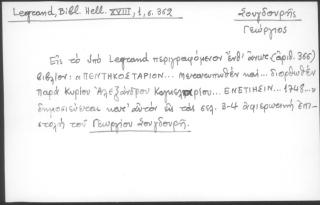 Legrand, Bibl. Hell. XVIII, 1, σ. 362
Σουγδουρῆς
Γεώργιος
Εἰς τὸ ὑπὸ Legrand περιγραφόμενον ἐνθ' ἄνωτ. (ἀριθ. 366)
βιβλίον: «ΠΕΝΤΗΚΟΣΤΑΡΙΟΝ... καὶ... διορθωθὲν
παρὰ Κυρίου Ἀλεξάνδρου Καγκελλαρίου... ΕΝΕΤΙΗΣΙΝ... 1748...»
δημοσιεύεται κατ' αὐτὸν εἰς τὰς σελ. 3-4 ἀφιερωτικὴ ἐπι-
στολὴ τοῦ Γεωργίου Σουγδουρῆ.